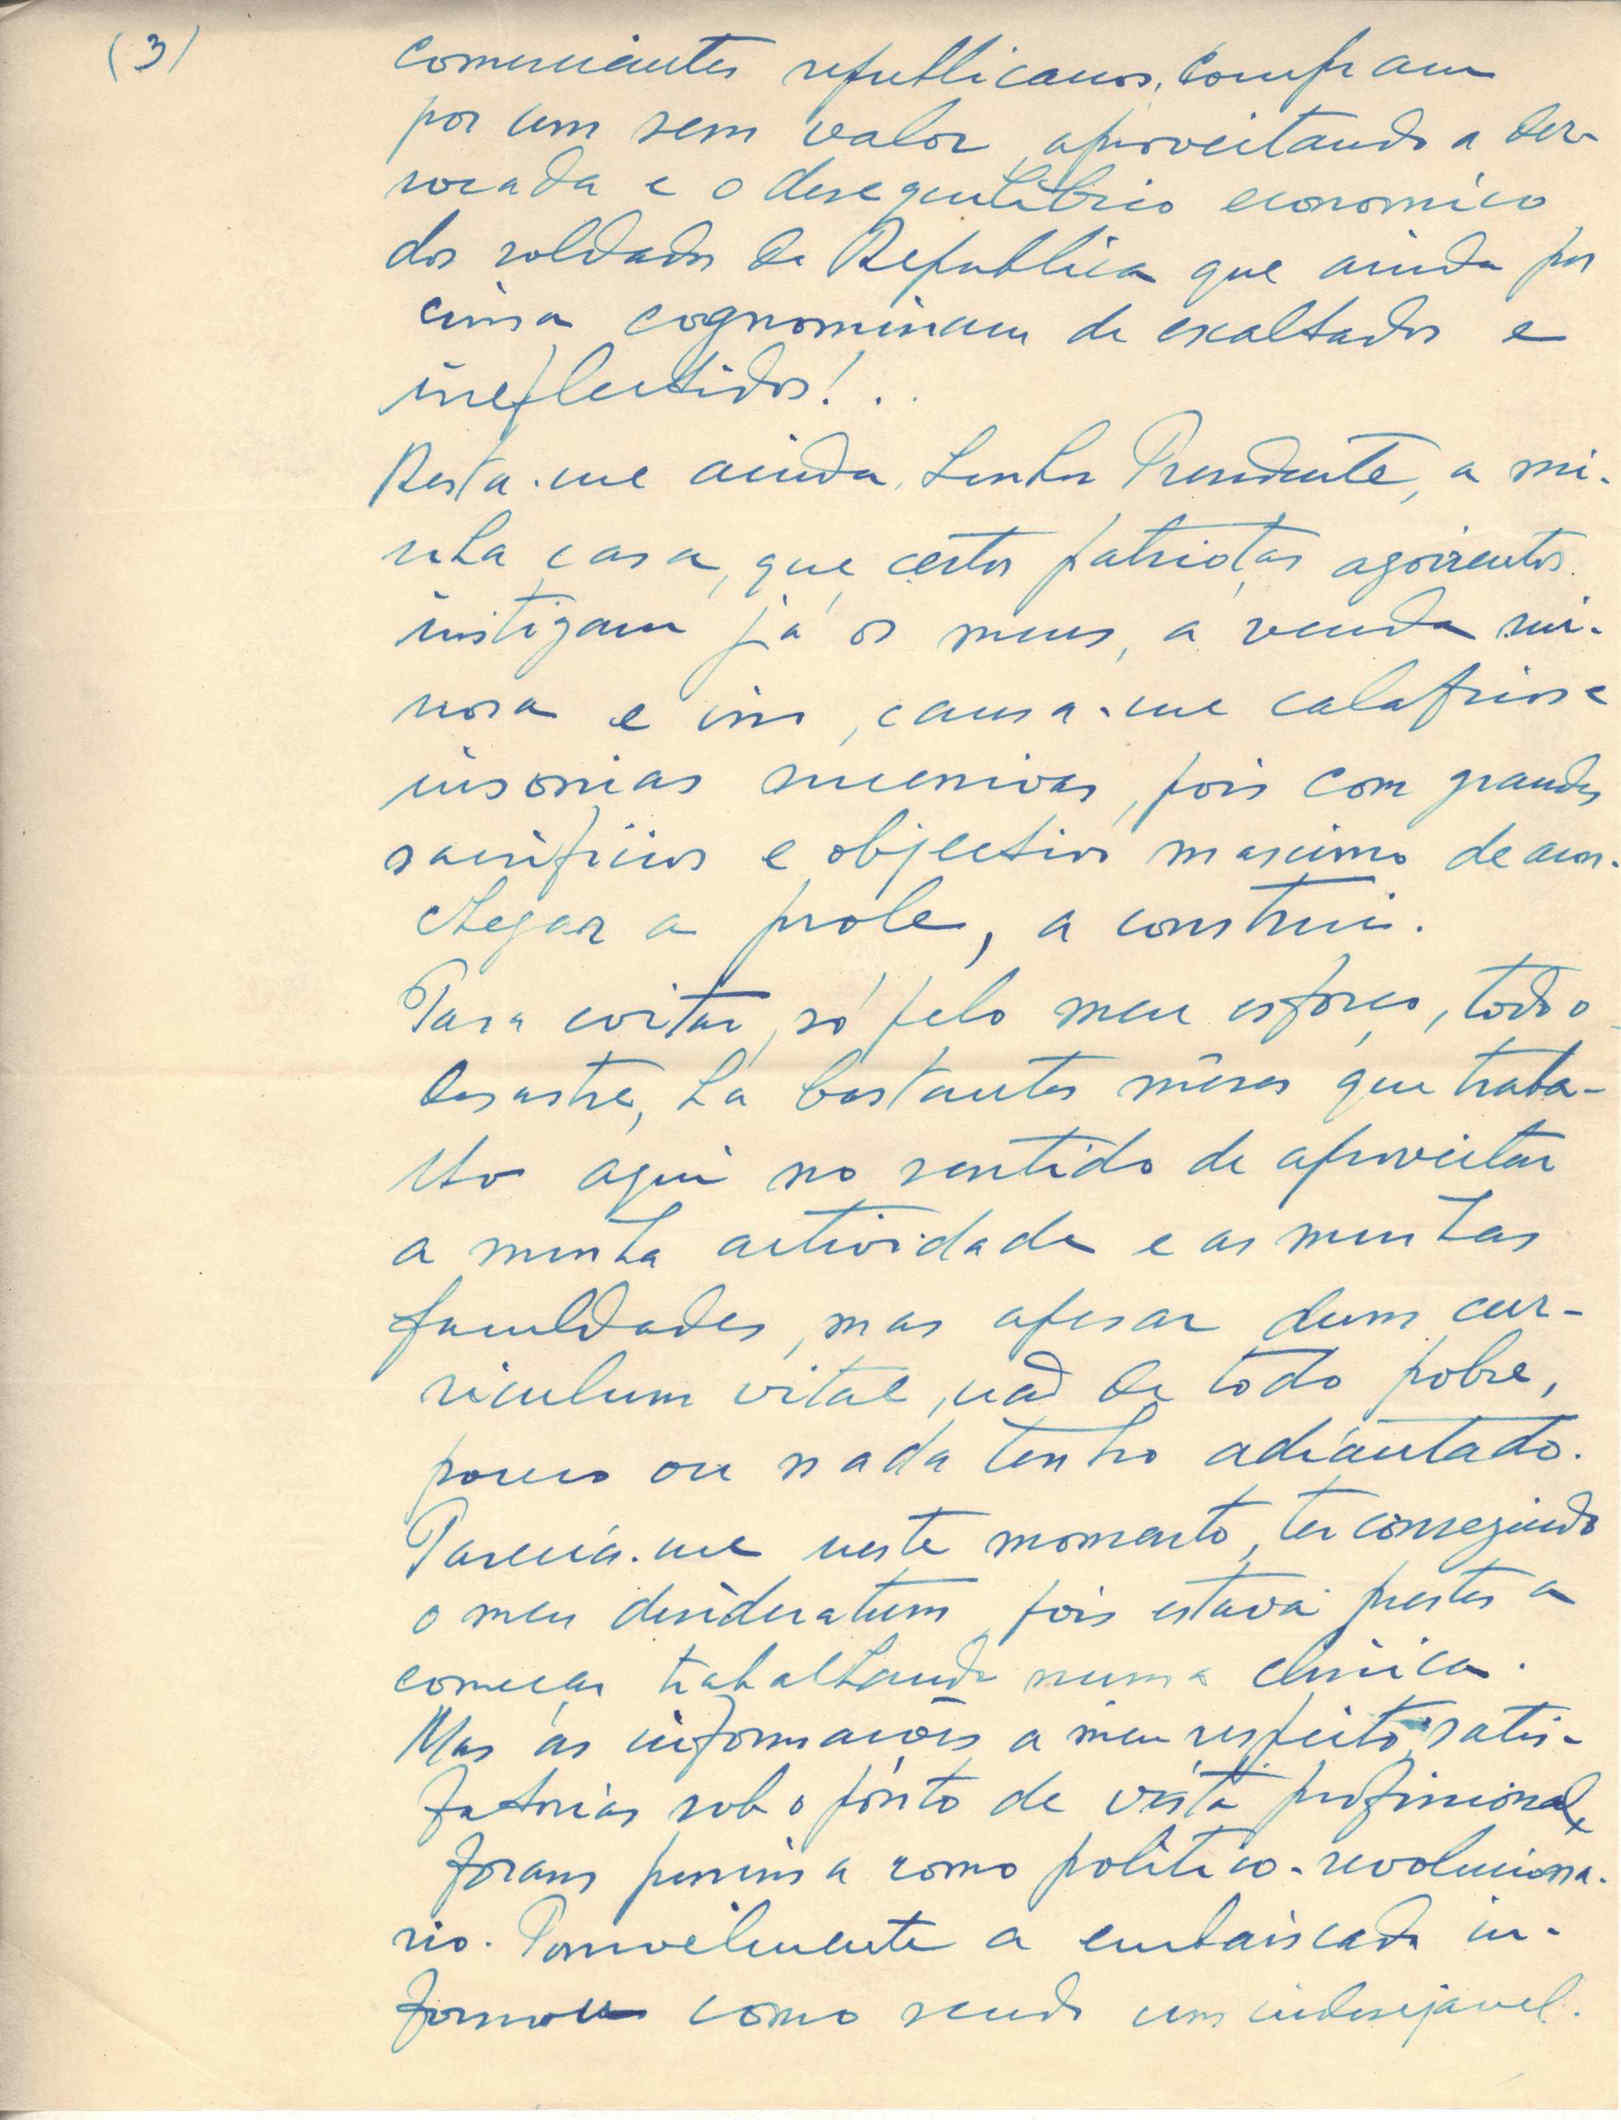 (3)
comerciantes republicanos, compram
por um sem valor, aproveitando a der-
rocada e o desequilibrio economico
dos soldados da Republica que ainda por
cima cognominam de exaltados e
ireflectidos!..
Resta-me ainda, Senhor Presidente, a mi-
nha casa, que, certos patriotas agoirentos
instigam já os meus, a venda rui-
nosa e isso, causa-me calafrios e
insonias sucessivas, pois com grandes
sacrificios e objectivo maximo de acon-
chegar a prole, a construi.
Para evitar, só pelo meu esforço, todo o
desastre, ha bastantes mêses que traba-
lho aqui no sentido de aproveitar
a minha actividade e as minhas
faculdades, mas apesar dum cur-
riculum vitae, não de todo pobre,
pouco ou nada tenho adiantado.
Parecia-me neste momento, ter conseguido
o meu desideratum, pois estava prestes a
começar trabalhando numa clinica.
Mas as informações a meu respeito, satis-
factorias sob o ponto de vista profissional,
foram pessimas como politico-revoluciona-
rio. Possivelmente a embaixada in-
formou como sendo um indesejavel.